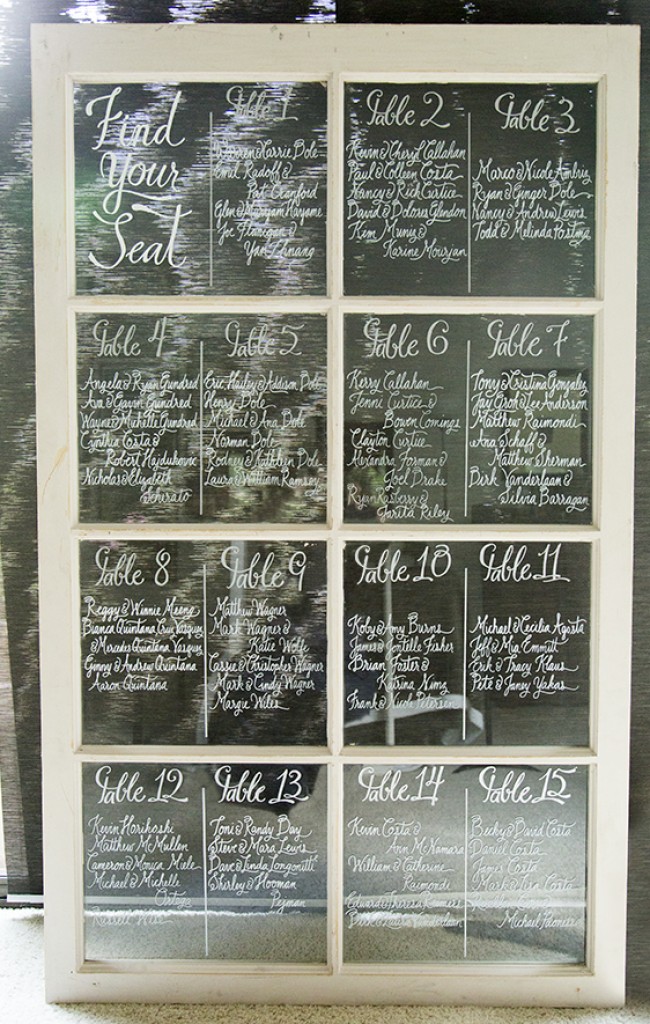 Find
Your
Seat
Table 1
Warren & Carrie Dole
Emil Radoff &
Pat Cranford
Glen & Maryam
Joe Flanagan &
Yan
Table 2
Kevin & Cheryl Callahan
Paul & Colleen Costa
Nancy & Rick Curtice
David & Dolores Glendon
Ken Muniz &
Karine Mouryan
Table 3
Marco & Nicole Ambriz
Ryan & Ginger Dole
Nancy & Andrew Lewis
Todd & Melinda Postma
Table 4
Angela & Ryan Gundred
Ava & Gavin Gundred
Wayne & Michelle Gundred
Cynthia Costa &
Robert Hajdukovic
Nicholas & Elizabeth
Table 5
Eric, Hailey & Addison Dole
Henry Dole
Michael & Ana Dole
Norman Dole
Rodney & Kathleen Dole
Laura & William Ramsey
Table 6
Kerry Callahan
Jenni Curtice &
Bowen Comings
Clayton Curtice
Alexandra Forman &
Joel Drake
Ryan Rasberry &
Tarita Riley
Table 7
Tony & Cristina Gonzalez
Jay Groh & Lee Anderson
Matthew Raimondi
Ana Schaff &
Matthew Sherman
Dirk Vanderlaan &
Silvia Barragan
Table 8
Reggy & Winnie Meong
Bianca Quintana, Cruz Vasquez
& Mercedes Quintana Vasquez
Ginny & Andrew Quintana
Aaron Quintana
Table 9
Matthew Wagner
Mark Wagner &
Katie Wolfe
Cassie & Christopher Wagner
Mark & Cindy Wagner
Margie Wiles
Table 10
Koby & Amy Burns
James & Jontelle Fisher
Brian Foster &
Katrina Nimz
Frank & Nicole Petersen
Table 11
Michael & Cecilia Agosta
Jeff & Mia Emmitt
Erik & Tracy Klaus
Pete & Janey Yakas
Table 12
Kevin Horikoshi
Matthew McMullen
Cameron & Monica Miele
Michael & Michelle
Ortega
Wiles
Table 13
Toni & Randy Day
Steve & Mara Lewis
Dave & Linda Longonitti
Shirley & Hooman
Pezman
Table 14
Kevin Costa &
Ann McNamara
William & Catherine
Raimondi
Edward & Theresa
Vanderlaan
Table 15
Becky & David Costa
Daniel Costa
James Costa
Mark & Lisa Costa
Michael